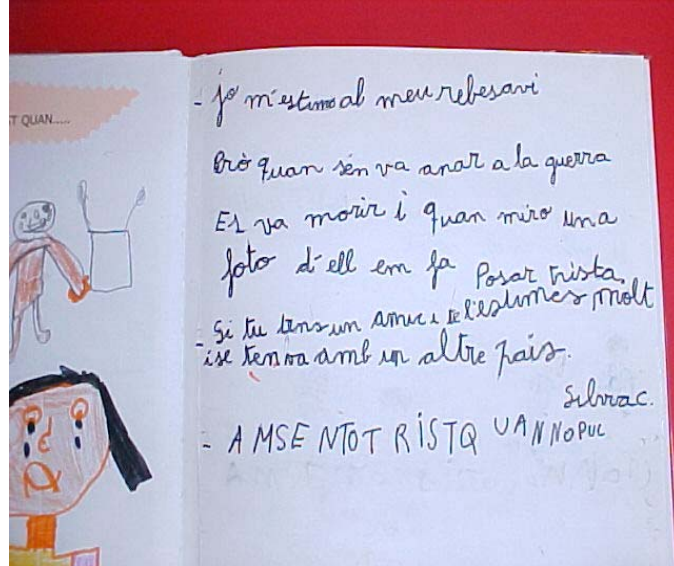 T QUAN.....
- jo m'estimo al meu rebesavi
Prò quan sèn va anar a la guerra
Es va morir i quan miro una
foto d'ell em fa Posar trista.
- Si tu tens un amic i te l'estimes molt
ise ten va amb un altre pais.
Silvia C.
- A MSE NTOT RISTQ UANNOPUC